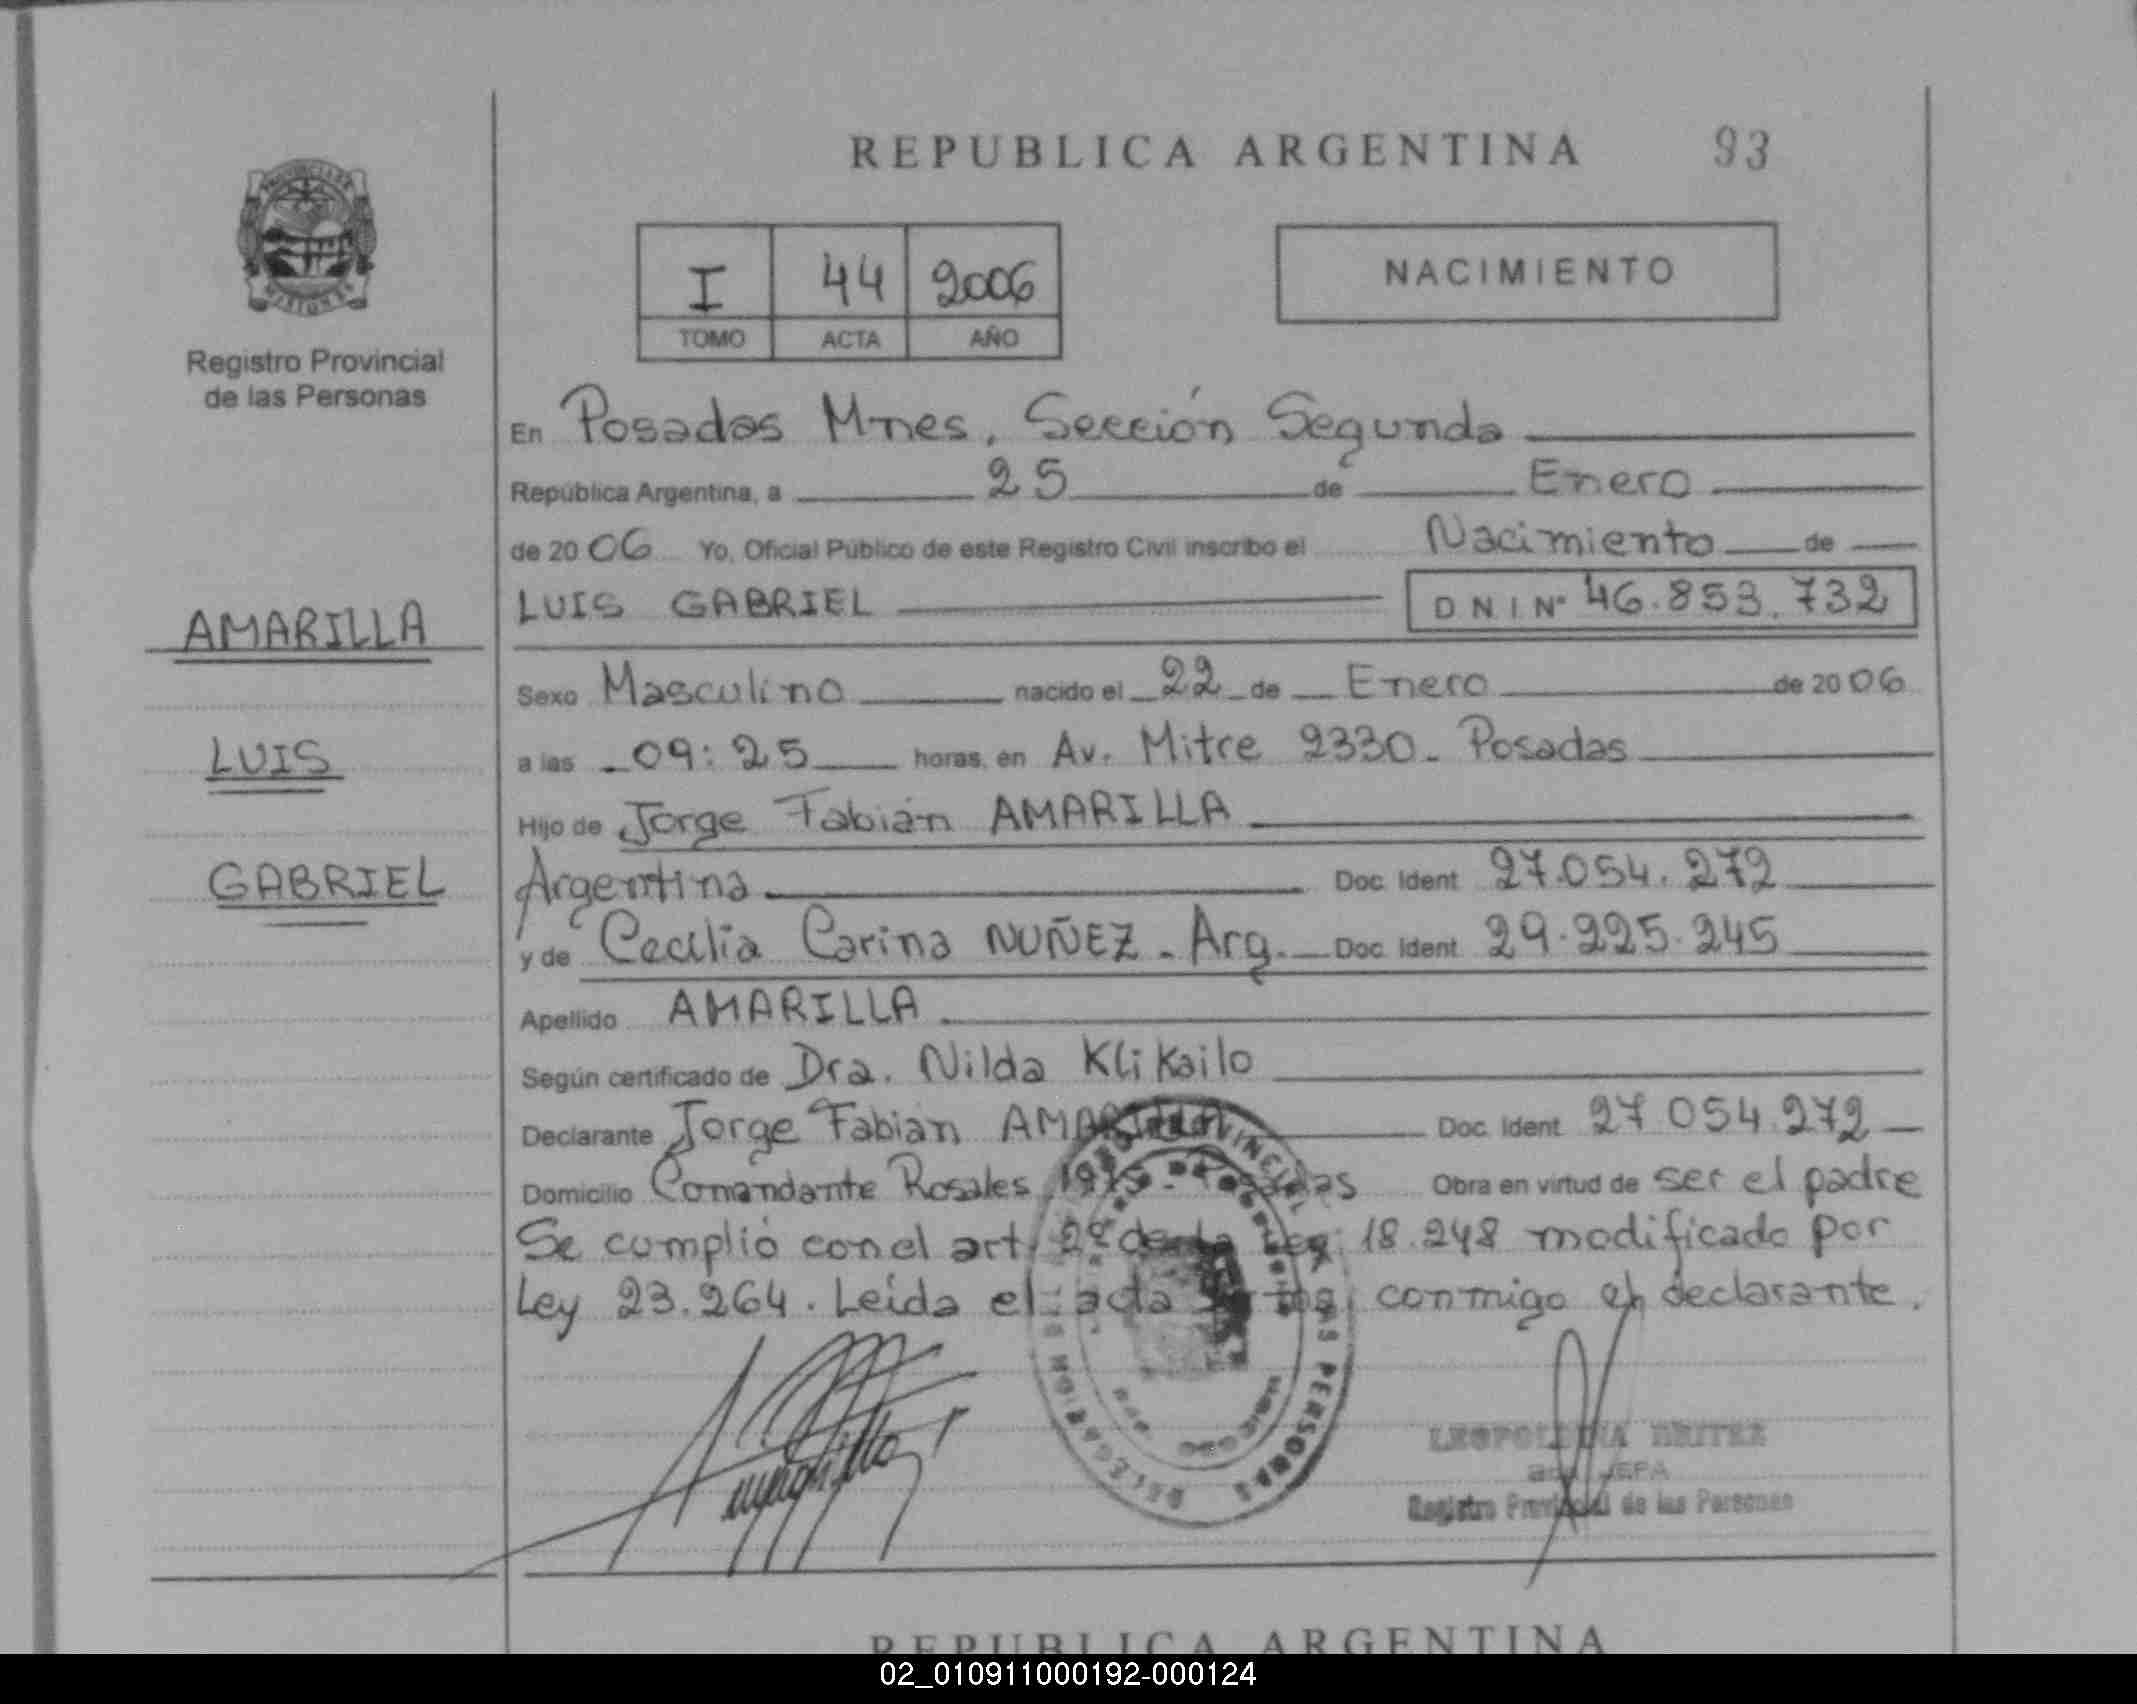 REPUBLICA ARGENTINA 93
I 44 2006
TOMO ACTA AÑO
NACIMIENTO
Registro Provincial
de las Personas
AMARILLA
LUIS
GABRIEL
En Posadas Mnes, Sección Segunda
República Argentina, a 25 de Enero
de 2006 Yo, Oficial Público de este Registro Civil inscribo el Nacimiento de
LUIS GABRIEL D N I Nº 46.853.732
Sexo Masculino nacido el 22 de Enero de 2006
a las 09:25 horas, en Av. Mitre 2330 - Posadas
Hijo de Jorge Fabián AMARILLA
Argentina Doc. Ident 27.054.272
y de Cecilia Carina NUÑEZ - Arg. Doc. Ident 29.225.245
Apellido AMARILLA
Según certificado de Dra. Nilda Klikailo
Declarante Jorge Fabián AMARILLA Doc. Ident 27 054.272
Domicilio Comandante Rosales Obra en virtud de ser el padre
Se cumplió con el art. 2º de la Ley 18.248 modificado por
Ley 23.264. Leída el acta conmigo el declarante.
Registro Provincial de las Personas
REPUBLICA ARGENTINA
02_010911000192-000124